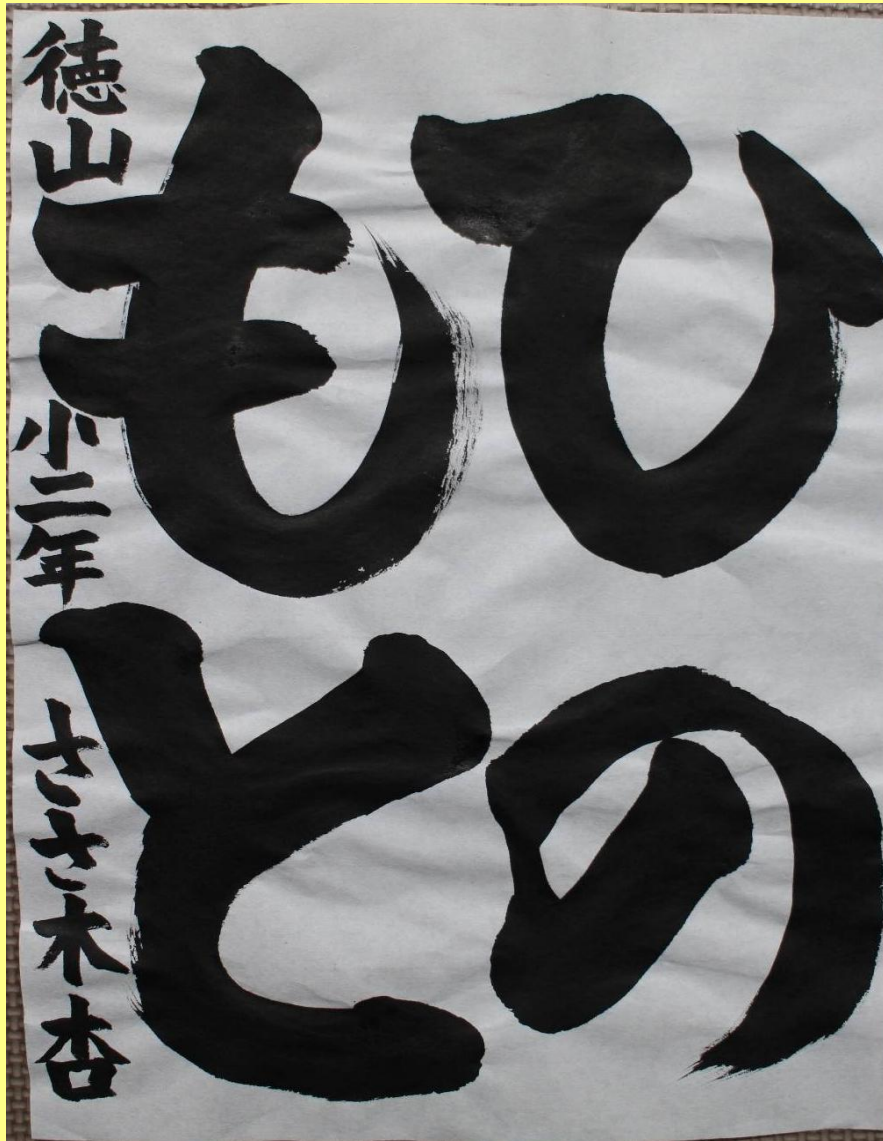 ひの
もと
徳山小二年 ささ木杏